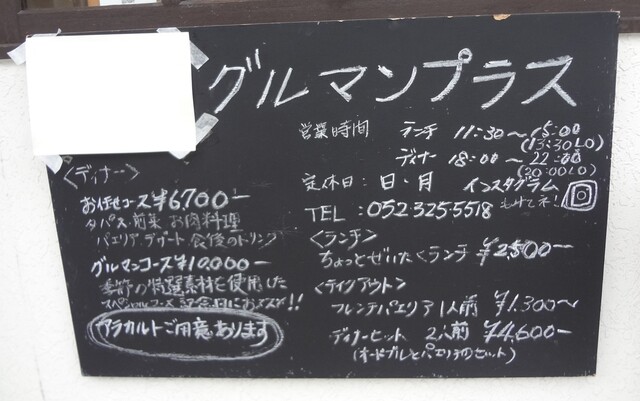 グルマンプラス
営業時間 ランチ 11:30〜15:00
(13:30LO)
ディナー 18:00〜22:00
(20:00LO)
定休日:日・月 インスタグラム
TEL:052-325-5518
〈ランチ〉
ちょっとぜいたくランチ ¥2,500−
〈テイクアウト〉
フレンチパエリア1人前 ¥1,300〜
ディナーセット 2人前 ¥4,600−
(オードブルとパエリアのセット)
〈ディナー〉
お任せコース¥6,700−
タパス 前菜 お肉料理
パエリア デザート 食後のドリンク
グルマンコース¥10,000−
季節の特選素材を使用した
スペシャルコース 記念日におススメ!!
アラカルトご用意あります